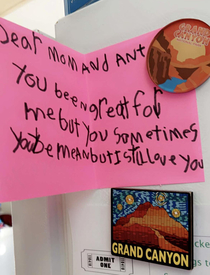 Dear Mom and Ant
You been great for
me but you sometimes
you be mean but I still love you
GRAND
CANYON
GRAND CANYON
ADMIT
ONE